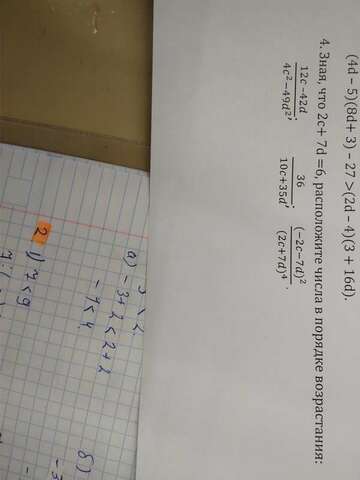 (4d − 5)(8d + 3) − 27 >(2d − 4)(3 + 16d).
4. Зная, что 2c + 7d =6, расположите числа в порядке возрастания:
12c−42d / 4c²−49d²; 36 / 10c+35d; (−2c−7d)² / (2c+7d)⁴.
< 2.
а) −3+2 < 2+2
−1 < 4
б)
2 1) 7 < 9